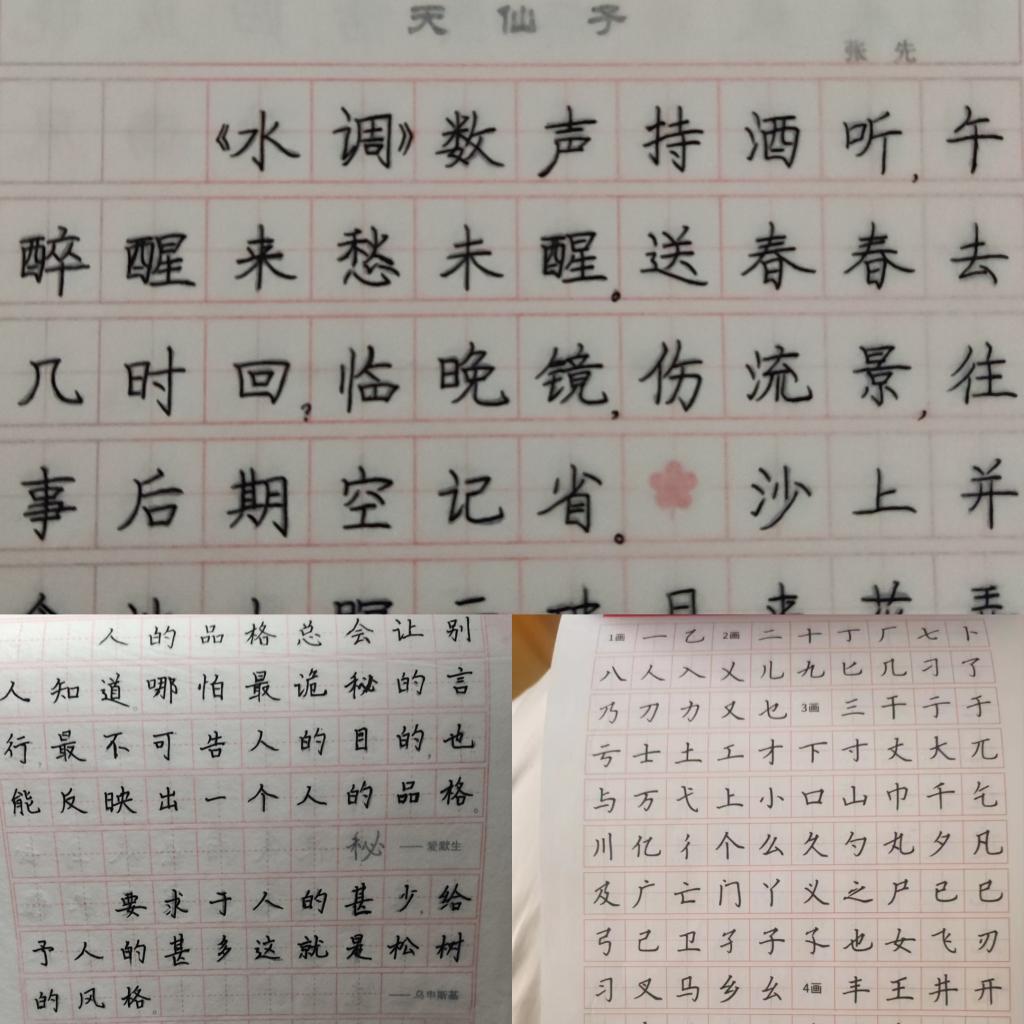 天仙子
张先
《水调》数声持酒听,午
醉醒来愁未醒。送春春去
几时回?临晚镜,伤流景,往
事后期空记省。沙上并
人的品格总会让别
人知道。哪怕最诡秘的言
行,最不可告人的目的,也
能反映出一个人的品格。
秘 —— 爱默生
要求于人的甚少,给
予人的甚多这就是松树
的风格。
—— 乌申斯基
1画 一 乙 2画 二 十 丁 厂 七 卜
八 人 入 乂 儿 九 匕 几 刁 了
乃 刀 力 又 乜 3画 三 干 亍 于
亏 士 土 工 才 下 寸 丈 大 兀
与 万 弋 上 小 口 山 巾 千 乞
川 亿 彳 个 么 久 勺 丸 夕 凡
及 广 亡 门 丫 义 之 尸 已 巳
弓 己 卫 孑 子 孓 也 女 飞 刃
习 叉 马 乡 幺 4画 丰 王 井 开